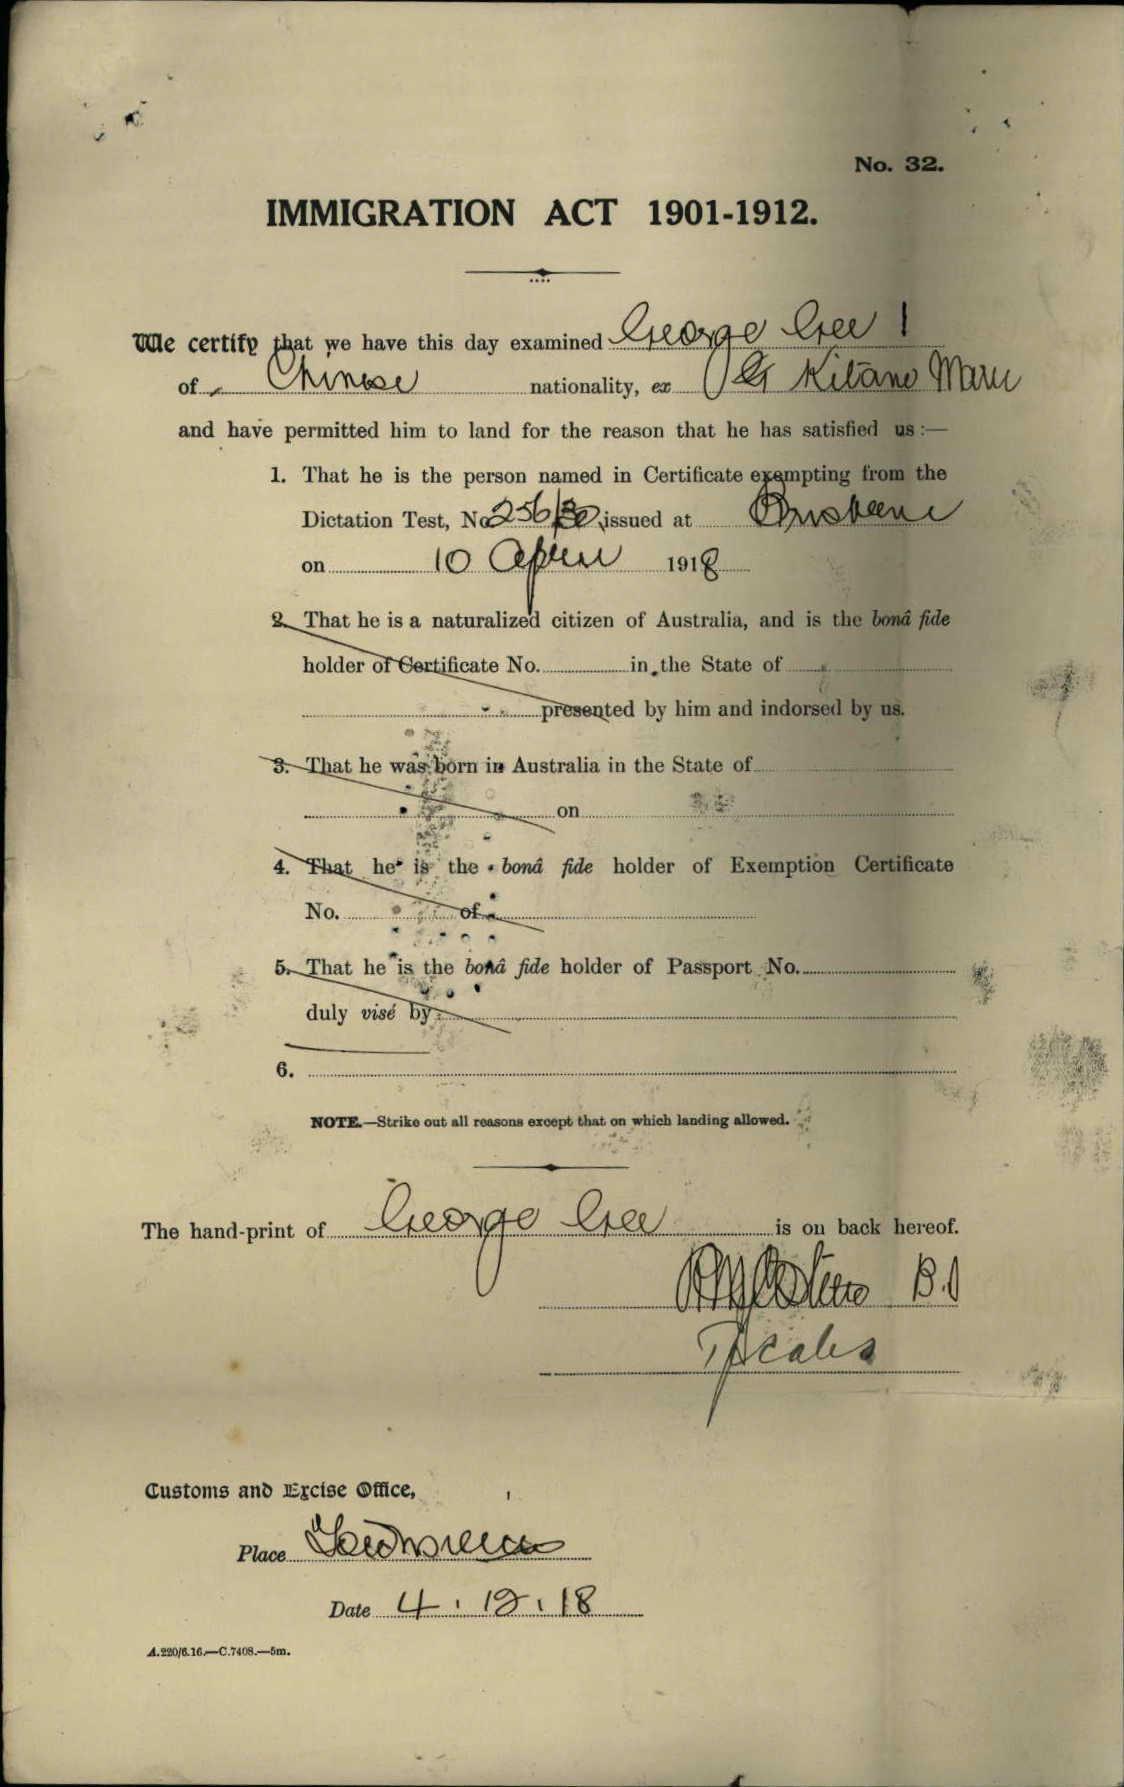 No. 32.
IMMIGRATION ACT 1901-1912.
We certify that we have this day examined George Gee
of Chinese nationality, ex Kitano Maru
and have permitted him to land for the reason that he has satisfied us:—
1. That he is the person named in Certificate exempting from the
Dictation Test, No. 256/30 issued at Brisbane
on 10 April 1918
2. That he is a naturalized citizen of Australia, and is the bonâ fide
holder of Certificate No. in the State of
presented by him and indorsed by us.
3. That he was born in Australia in the State of
on
4. That he is the bonâ fide holder of Exemption Certificate
No. of
5. That he is the bonâ fide holder of Passport No.
duly visé by
6.
NOTE.—Strike out all reasons except that on which landing allowed.
The hand-print of George Gee is on back hereof.
Customs and Excise Office,
Place
Date 4.12.18
A.220/6.16.—C.7408.—5m.